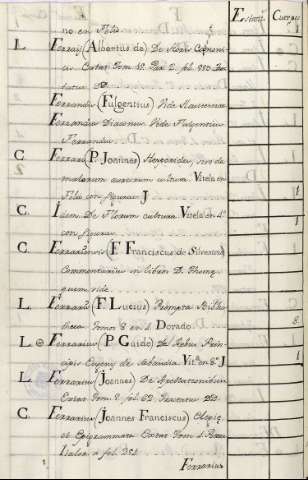 Estant. Cuerpos
no en Folio
L. Ferrari (Albertus de) De Horis Canoni
cis Extat Tom. 12. Par. 2. fol.
tatus
Ferrandi (Fulgentius) Vide
Ferrandus Diaconus Vide Fulgentius
Ferrandus
C Ferrari (P. Joannes) Hesperides, sive de
malorum aureorum cultura Vitela en
Folio con figuras J 1
C. Idem De Florum cultura Vitela en 4º
con figuras 1
C. Ferrariensis (F. Franciscus de Silvestris)
Commentarius in libros D. Thom
quem vide
L. Ferrari (F. Lucius) Prompta Biblio
theca tomos 8 en 4. Dorado. 8
L. Ferrarius (P. Guido) De Rebus Prin
cipis Eugenij de Sabaudia Vit.ª en 8º J 1
L. Ferrarius (Joannes) De Apellationibus
Extat Tom. 2. fol. 62. Tractatus
C Ferrarius (Joannes Franciscus) Elogia
et Epigrammata Extat Tom. 4.
Italor. a fol. 251.
Ferrarius